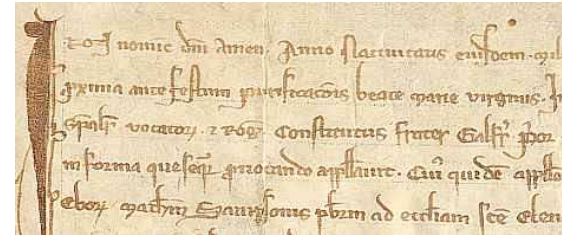 nomine dni Amen. Anno Natiuitatis eiusdem. mil
pxima ante festum purificacois beate marie virginis. I
spalr vocator. z Rog. Constitutus frater Galfr. Prior
in forma que seqr. puocando appllauit. Cui quidē appllo
Ebor. mathm Saunsonis pbrm ad eccliam scē Elen